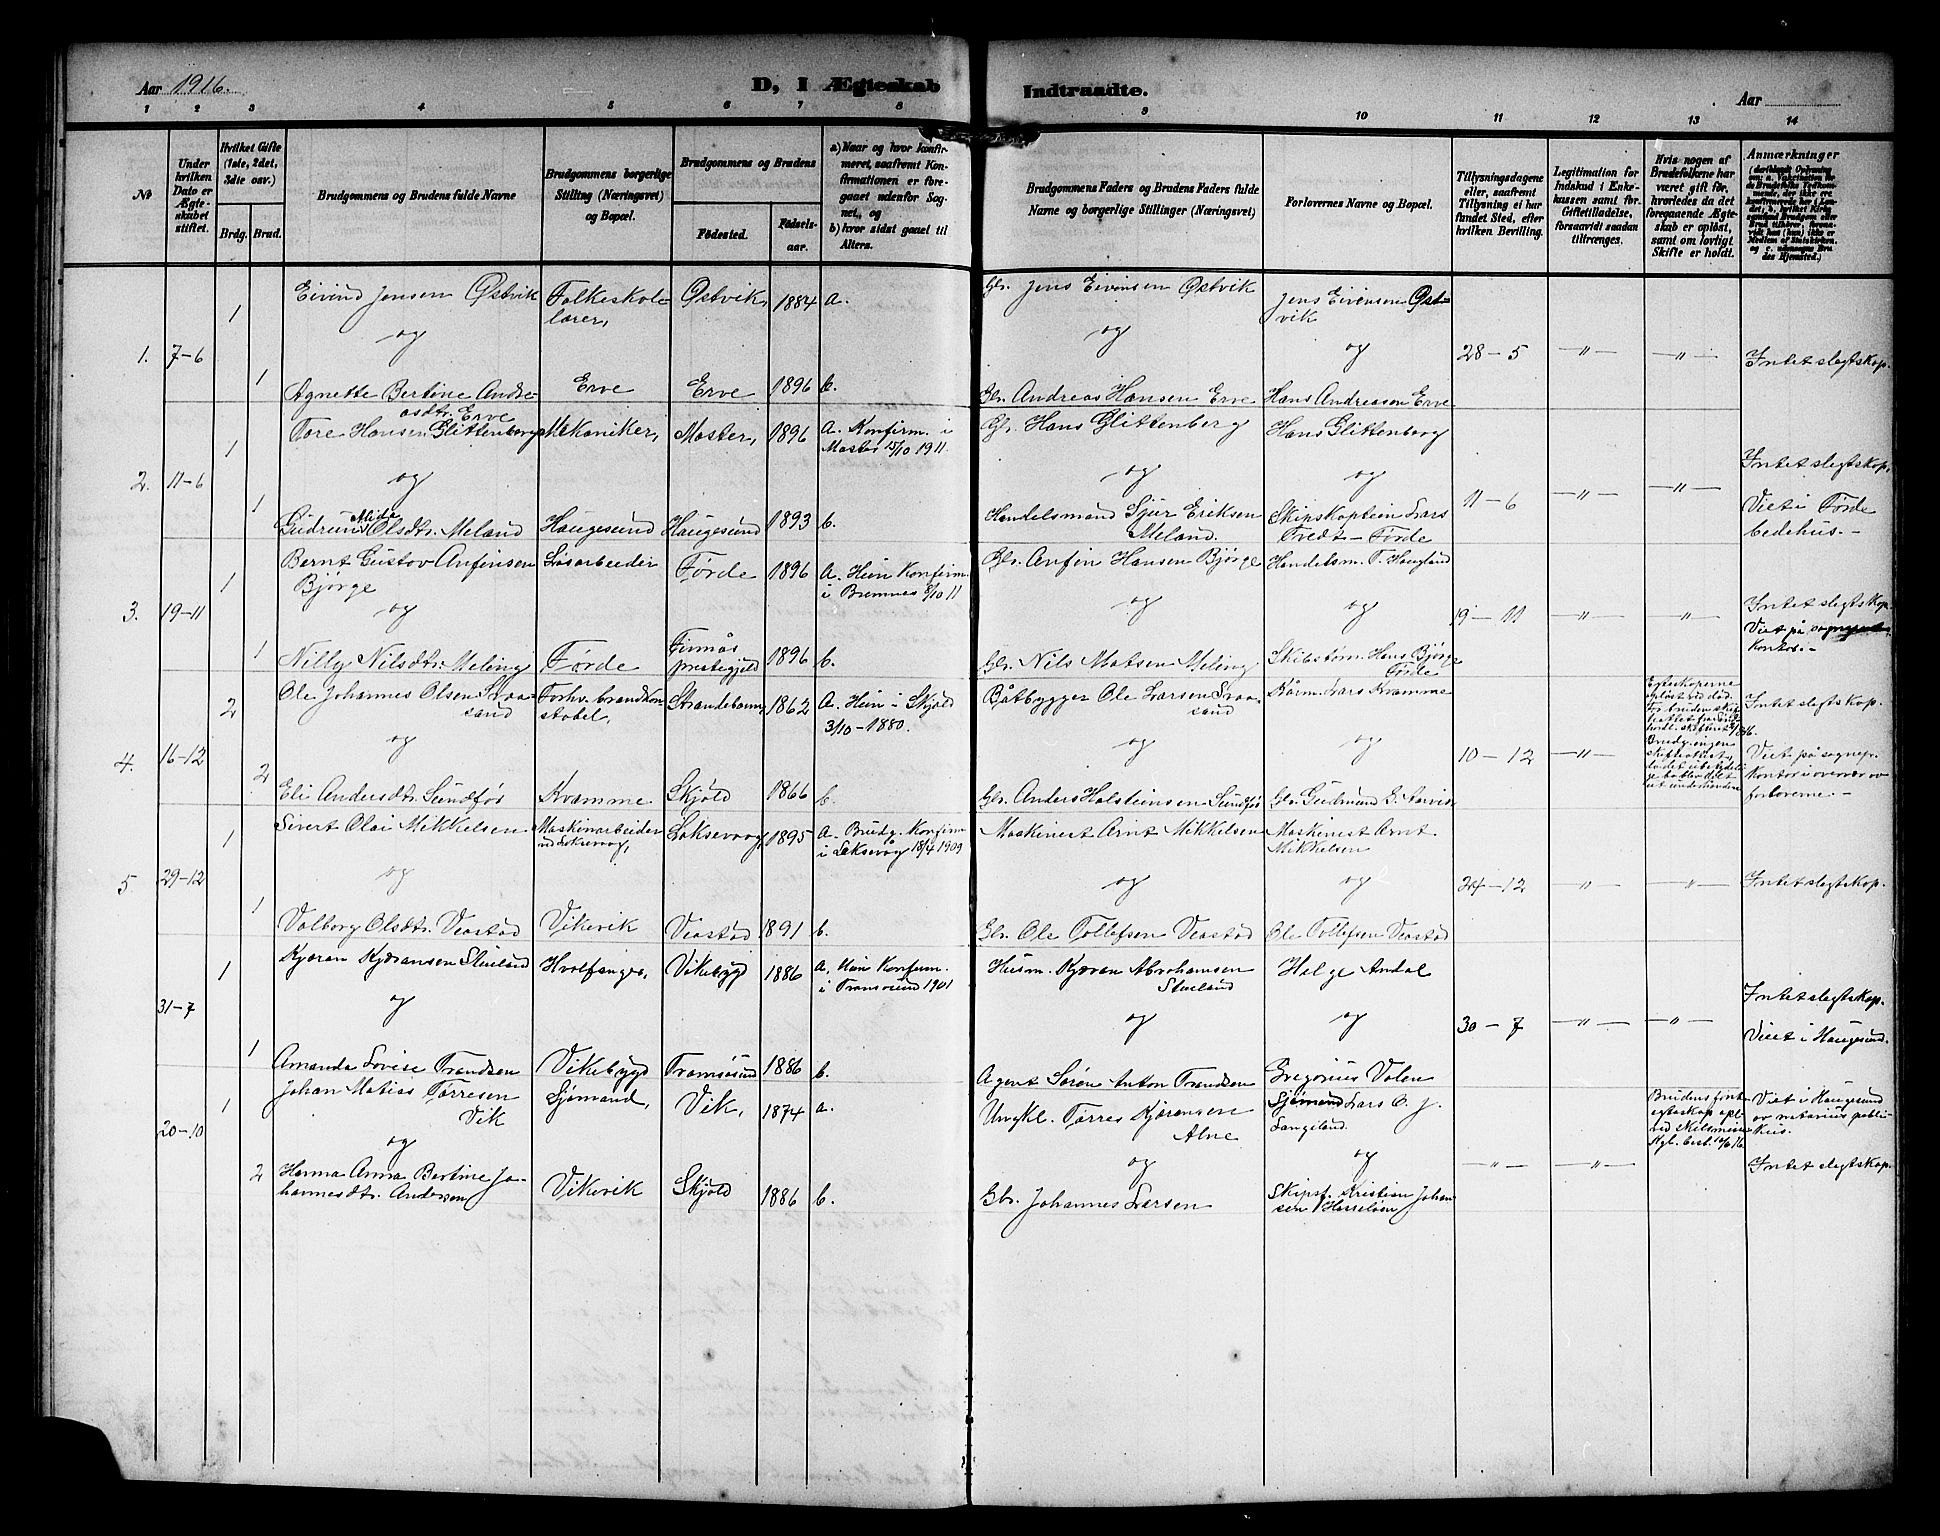 Aar 1916.
D, I Ægteskab Indtraadte.
Aar
1 2 3 4 5 6 7 8 9 10 11 12 13 14
No
Under hvilken Dato er Ægteskabet stiftet.
Hvilket Gifte (1ste, 2det, 3die osv.)
Brdg. Brud.
Brudgommens og Brudens fulde Navne
Brudgommens borgerlige Stilling (Næringsvei) og Bopæl.
Brudgommens og Brudens
Fødested. Fødselsaar.
a) Naar og hvor konfirmeret, saafremt Konfirmationen er foregaaet udenfor Sognet, og
b) hvor sidst gaaet til Alters.
Brudgommens Faders og Brudens Faders fulde Navne og borgerlige Stillinger (Næringsvei)
Forlovernes Navne og Bopæl.
Tillysningsdagene eller, saafremt Tillysning ei har fundet Sted, efter hvilken Bevilling.
Legitimation for Indskud i Enkekassen samt for Giftetilladelse, forsaavidt saadan tiltrænges.
Hvis nogen af Brudefolkene har været gift før, hvorledes da det foregaaende Ægteskab er opløst, samt om lovligt Skifte er holdt.
Anmærkninger
1 Eivind Jensen Østvik Folkeskolelærer, Østvik, 1884 a. Gbr. Jens Eivensen Østvik Jens Eivensen Østvik
1. 7-6 og og og 28-5 -"- -"- Intet slegtskap.
1 Agnette Bertine Andreasdtr. Erve Erve Erve 1896 b. Gbr. Andreas Hansen Erve Hans Andreasen Erve
1 Tore Hansen Glittenberg Mekaniker, Moster, 1896 A. Konfirm. i Moster 15/10 1911. Gbr. Hans Glittenberg Hans Glittenberg
2. 11-6 og og og 11-6 -"- -"- Intet slegtskap. Viet i Førde bedehus.-
1 Gudrun Olsdtr. Meland Haugesund Haugesund 1893 b. Handelsmand Sjur Eriksen Meland. Skipskaptein Lars Tredt - Førde
1 Bernt Gustav Anfinsen Bjørge Løsarbeider Førde 1896 A. Hein Konfirm. i Bremnes 8/10 11 Gbr. Anfin Hansen Bjørge Handelsm. T. Haugland
3. 19-11 og og og 19-11 -"- -"- Intet slegtskap. Viet på kontor.-
1 Nilly Nilsdtr. Meling Førde Finnås prestegjeld 1896 b. Gbr. Nils Matsen Meling Skibstøm. Hans Bjørge Førde
2 Ole Johannes Olsen Svaasand Forhv. brandkonstobel, Strandebarm, 1862 A. Hein i Skjold 3/10-1880. Båtbygger Ole Larsen Svaasand Kårm. Lars Kvamme
4. 16-12 og og og 10-12 -"- Egteskaperne opløst ved død. Intet slegtskap. Viet på sognepr. kontor i overvær av forloverne.-
2 Eli Andersdtr. Sundfør Kvamme Skjold 1866 b. Gbr. Anders Holsteinsen Sundfør Gbr. Gudmund G.
1 Sivert Olai Mikkelsen Maskinarbeider ved Laksevaag, Laksevaag, 1895 A. Brudg. Konfirm i Laksevåg 18/4 1909 Maskinist Arnt Mikkelsen Maskinist Arnt Mikkelsen
5 29-12 og og og 24-12 -"- -"- Intet slegtskap.
1 Valborg Olsdtr. Veastad Vikevik Veastad 1891 b. Gbr. Ole Tollefsen Veastad Ole Tollefsen Veastad
1 Kjøran Kjøransen Stueland Hvalfanger, Vikebygd 1886 a. Hein Konfirm. i Tromsøsund 1901 Husm. Kjøran Abrahamsen Stueland Helge Andal
31-7 og og og 30-7 -"- -"- Intet slegtskap. Viet i Haugesund.
1 Amanda Lovise Trandsen Vikebygd Tromsøsund 1886 b. Agent Søren Anton Trandsen Gregorius Valen
1 Johan Matias Tørresen Vik Sjømand, Vik, 1874 a. Ungkl. Tørres Kjøransen Alne Sjømand Lars O. J. Langeland.
20-10 og og og -"- -"- Viet i Haugesund av notarius publikus. Intet slegtskap.
2 Hanna Anna Bertine Johannesdtr. Andersen Vikevik Skjold 1886 b. Gbr. Johannes Larsen Skipsf. Kristian Johansen Hasseløen